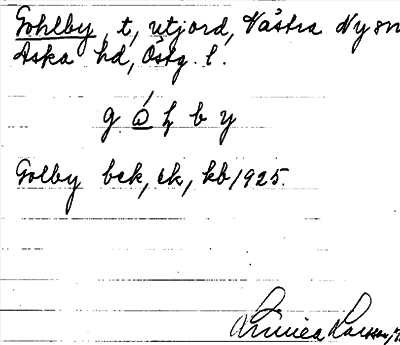 Gohlby, t, utjord, Västra Ny sn
Aska hd, Östg. l.
gó̲ļby
Golby bek, ek, kb 1925.
Linnea Larsson